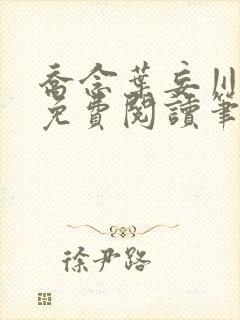 喬念葉妄川
免費閱讀筆
徐尹路